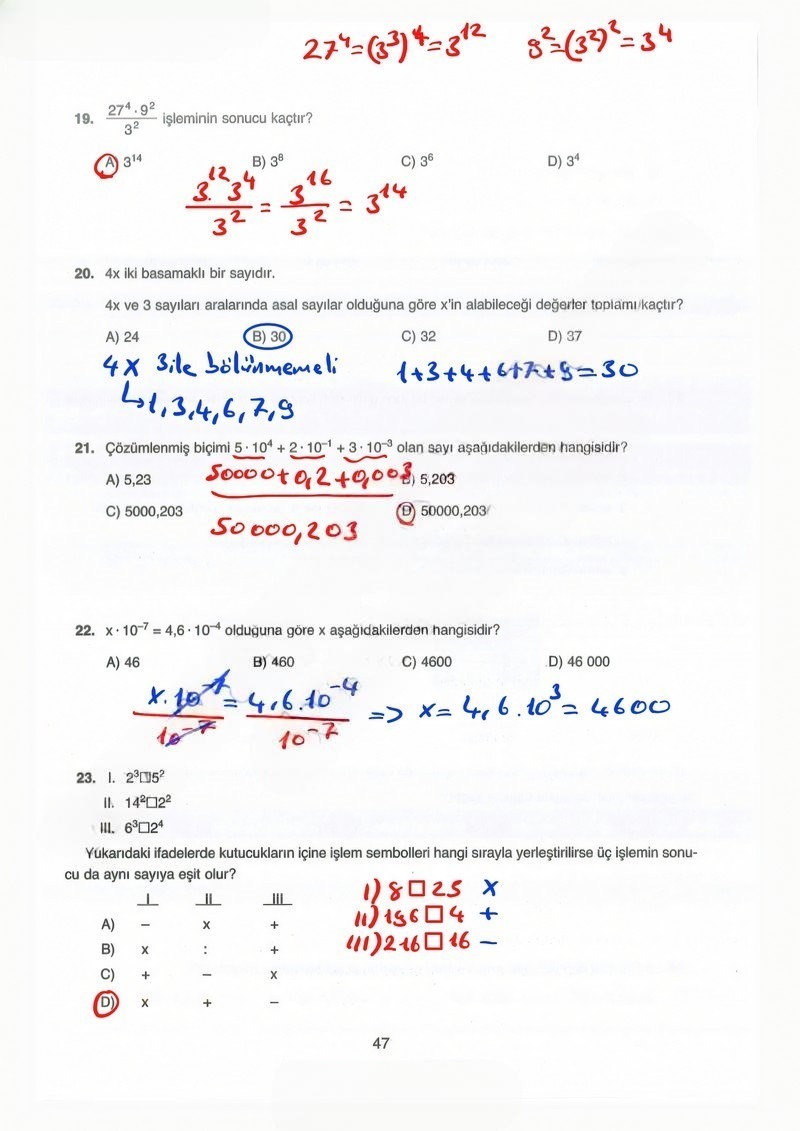 27⁴=(3³)⁴=3¹² 9²=(3²)²=3⁴
19. 27⁴ · 9² / 3² işleminin sonucu kaçtır?
A) 3¹⁴ B) 3⁸ C) 3⁶ D) 3⁴
3¹².3⁴ / 3² = 3¹⁶ / 3² = 3¹⁴
20. 4x iki basamaklı bir sayıdır.
4x ve 3 sayıları aralarında asal sayılar olduğuna göre x'in alabileceği değerler toplamı kaçtır?
A) 24 B) 30 C) 32 D) 37
4x 3ile bölünmemeli 1+3+4+6+7+9=30
↳1,3,4,6,7,9
21. Çözümlenmiş biçimi 5 · 10⁴ + 2 · 10⁻¹ + 3 · 10⁻³ olan sayı aşağıdakilerden hangisidir?
A) 5,23 50000+0,2+0,003 B) 5,203
C) 5000,203 D) 50000,203
50000,203
22. x · 10⁻⁷ = 4,6 · 10⁻⁴ olduğuna göre x aşağıdakilerden hangisidir?
A) 46 B) 460 C) 4600 D) 46 000
x.10⁻⁷ / 10⁻⁷ = 4,6.10⁻⁴ / 10⁻⁷ => x= 4,6.10³= 4600
23. I. 2³□5²
II. 14²□2²
III. 6³□2⁴
Yukarıdaki ifadelerde kutucukların içine işlem sembolleri hangi sırayla yerleştirilirse üç işlemin sonu-
cu da aynı sayıya eşit olur?
I II III
A) – x +
B) x : +
C) + – x
D) x + –
I) 8□25 x
II) 196□4 +
III) 216□16 –
47